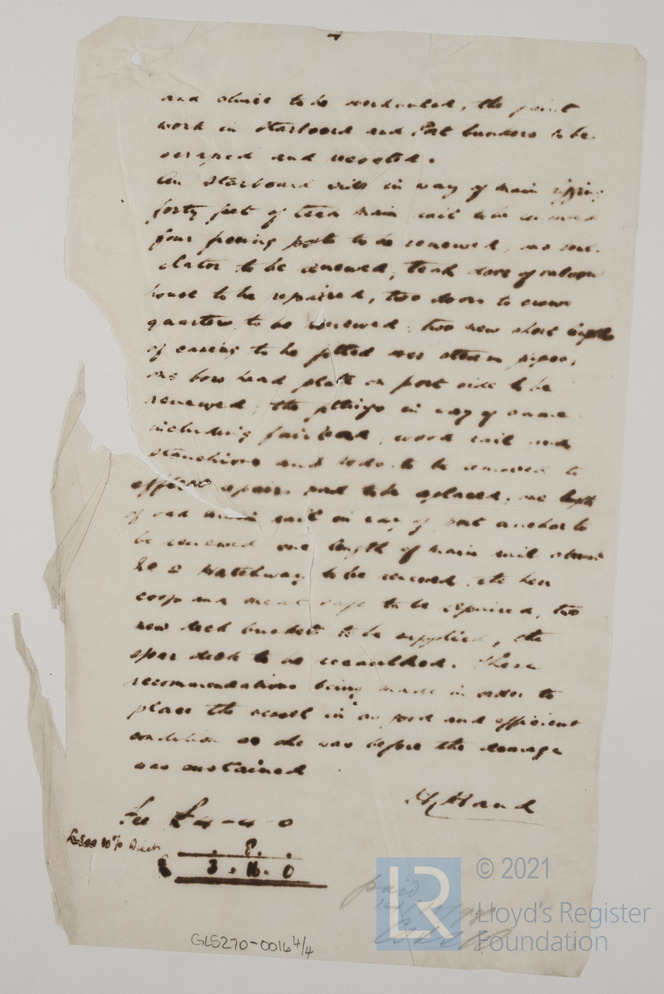 and sluice to be overhauled, the paint
work in starboard and Port bunkers to be
scraped and recoated.
On Starboard side in way of main rigging
forty feet of teak main rail
four fencing posts to be renewed, one
to be renewed, teak door of saloon
house to be repaired, two doors to crew
quarters to be renewed, two new short lengths
of casing to be fitted over steam pipes,
one bow head plate on port side to be
renewed, the fittings in way of same
including fairlead, wood rail and
stanchions and to be removed to
effect repairs and to be replaced, one length
of main rail in way of port anchor to
be renewed one length of main rail abreast
No 2 Hatchway to be renewed, the hen
coop and meat safe to be repaired, two
new deck buckets to be supplied, the
spar deck to be recaulked. These
recommendations being made in order to
place the vessel in as good and efficient
condition as she was before the damage
was sustained
Hand
Fee £4-4-0
Less 10% Disct
. 8 .
£ 3.16.0
paid
GLS270-0016 4/4
LR
© 2021
Lloyd's Register
Foundation